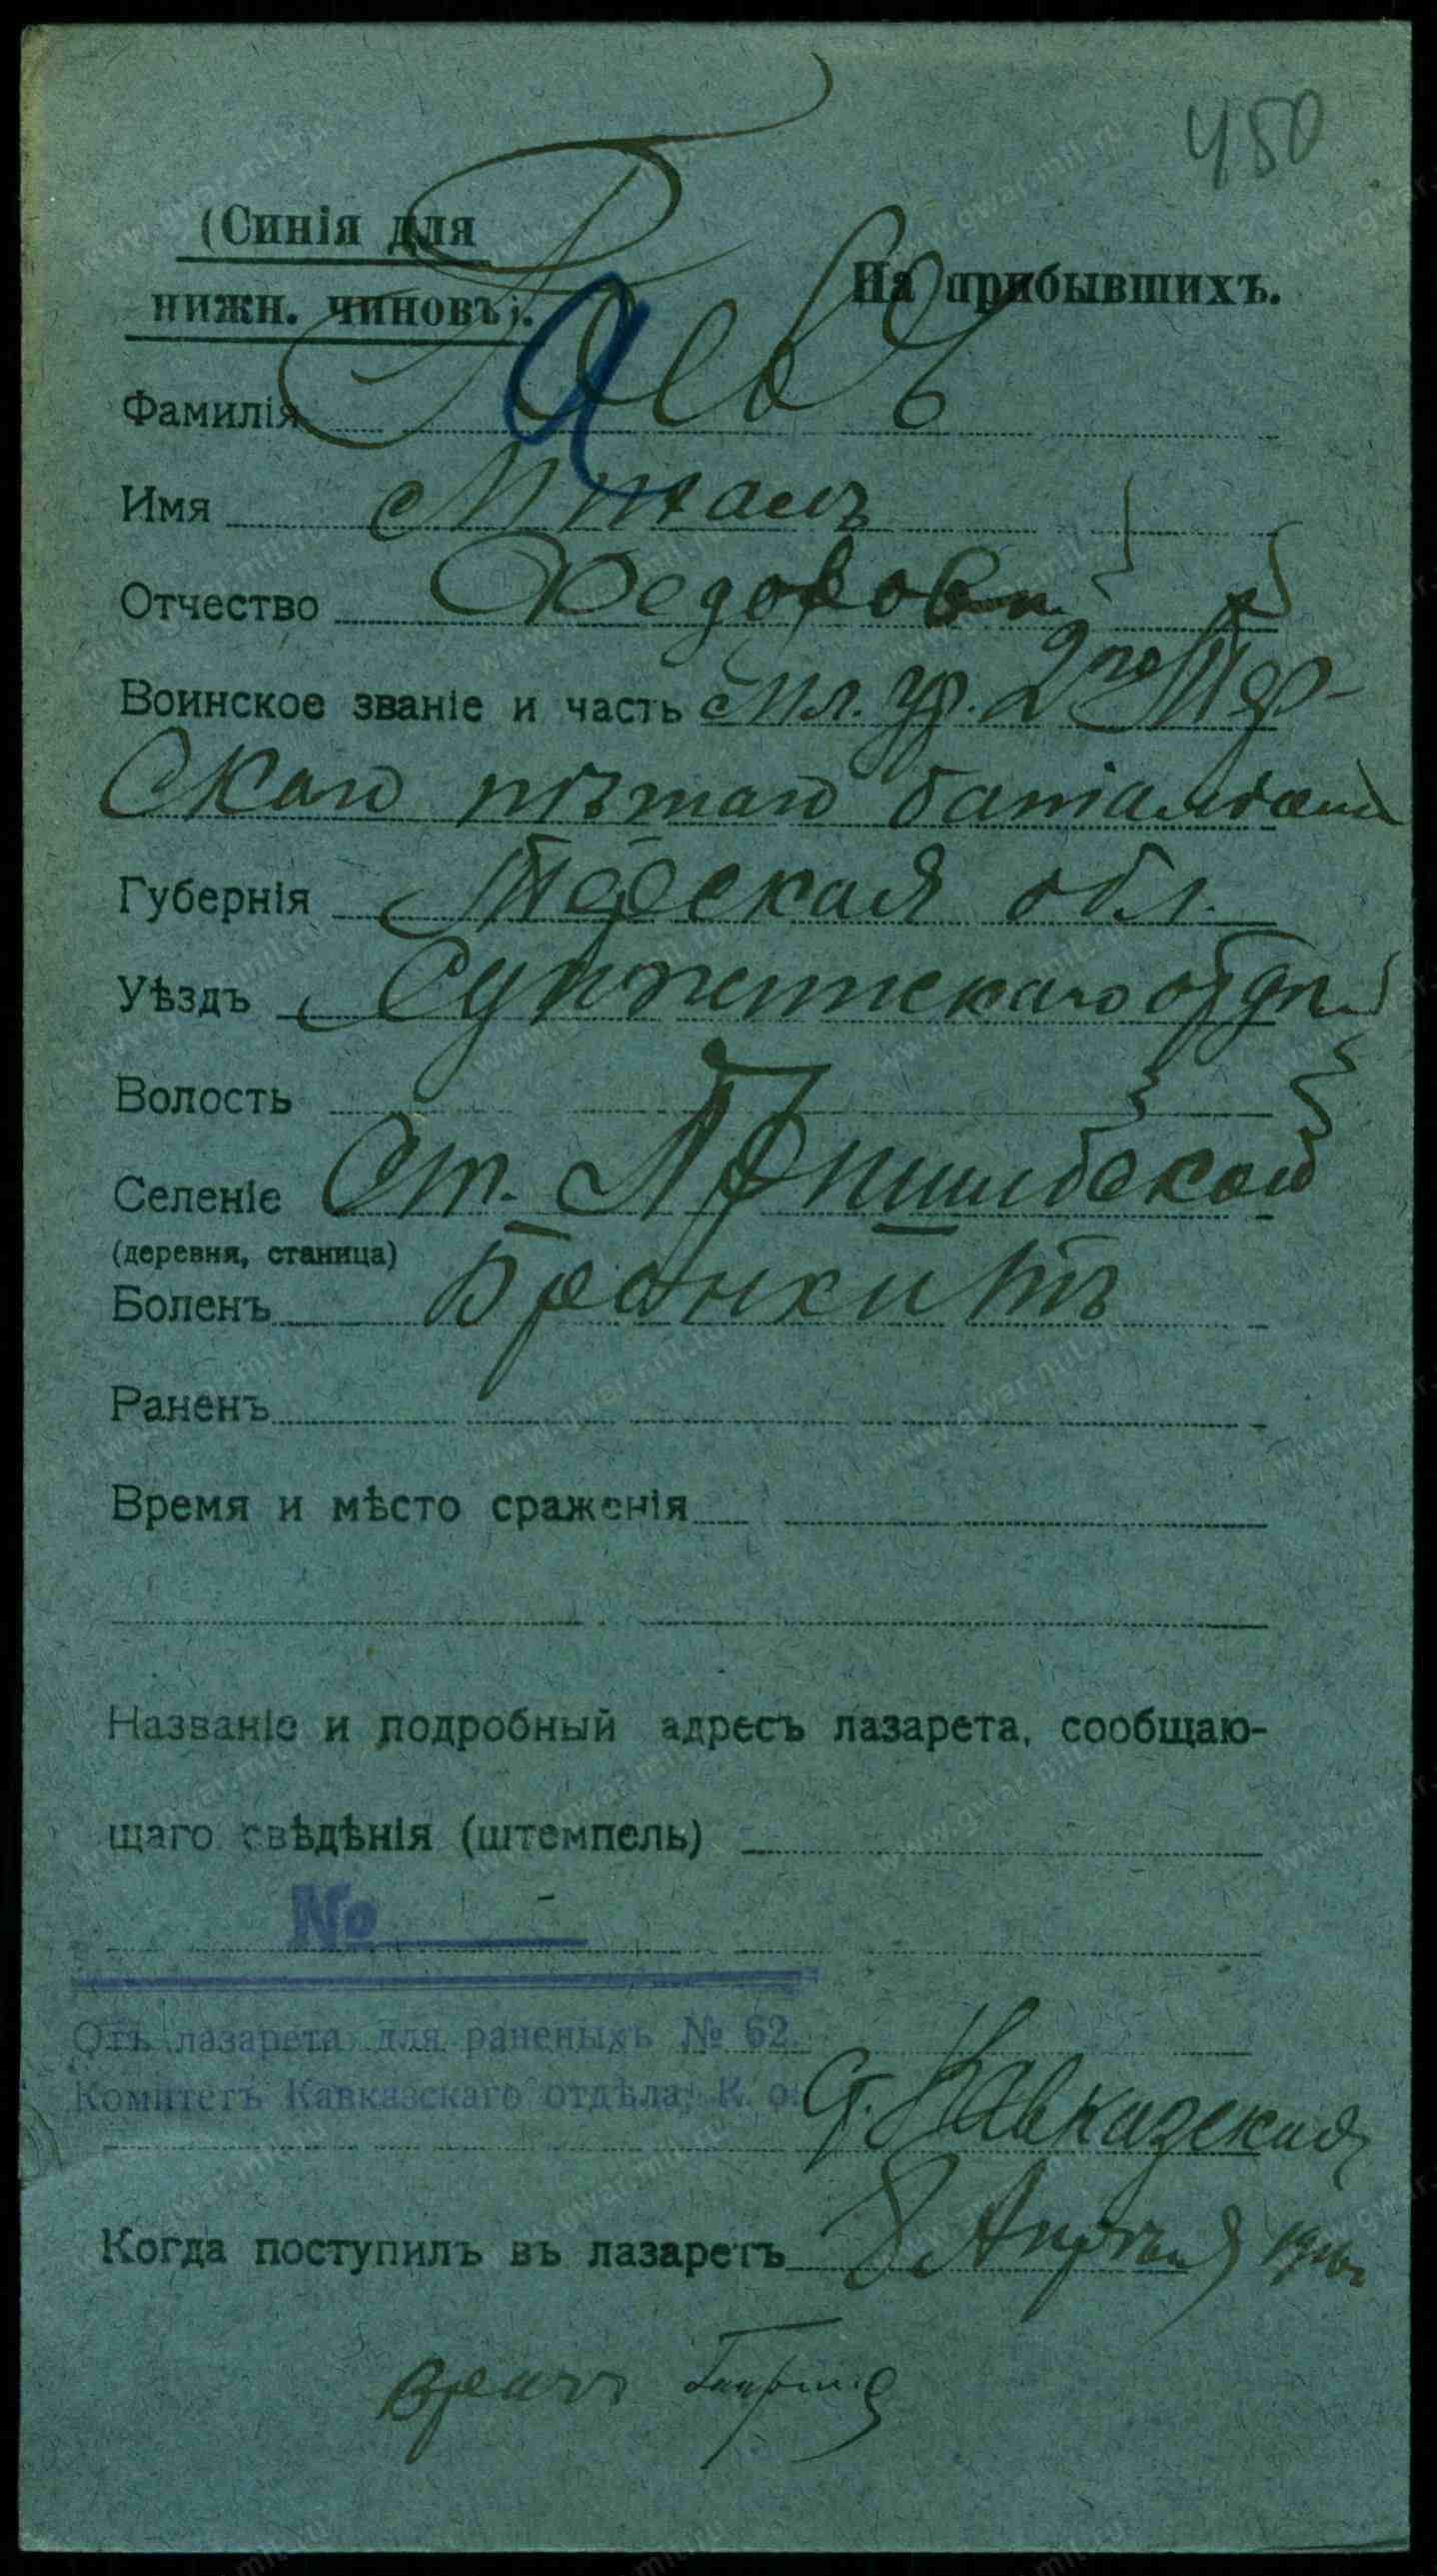 450
(Синія для
нижн. чиновъ).
На прибывшихъ.
Фамилія Раевъ
Имя Михаилъ
Отчество Федоров
Воинское званіе и часть Мл. ур. 2го Тер-
скаго пѣшаго баталіона
Губернія Терская обл.
Уѣздъ Сунженскаго отд
Волость
Селеніе Ст. Пришибской
(деревня, станица)
Боленъ Бронхитъ
Раненъ
Время и мѣсто сраженія
Названіе и подробный адресъ лазарета, сообщаю-
щаго свѣдѣнія (штемпель)
№
Отъ лазарета для раненыхъ № 62
Комитетъ Кавказскаго отдѣла, К. о.
Ст. Кавказская
Когда поступилъ въ лазаретъ 8 Апрѣля 1916г
Врачъ